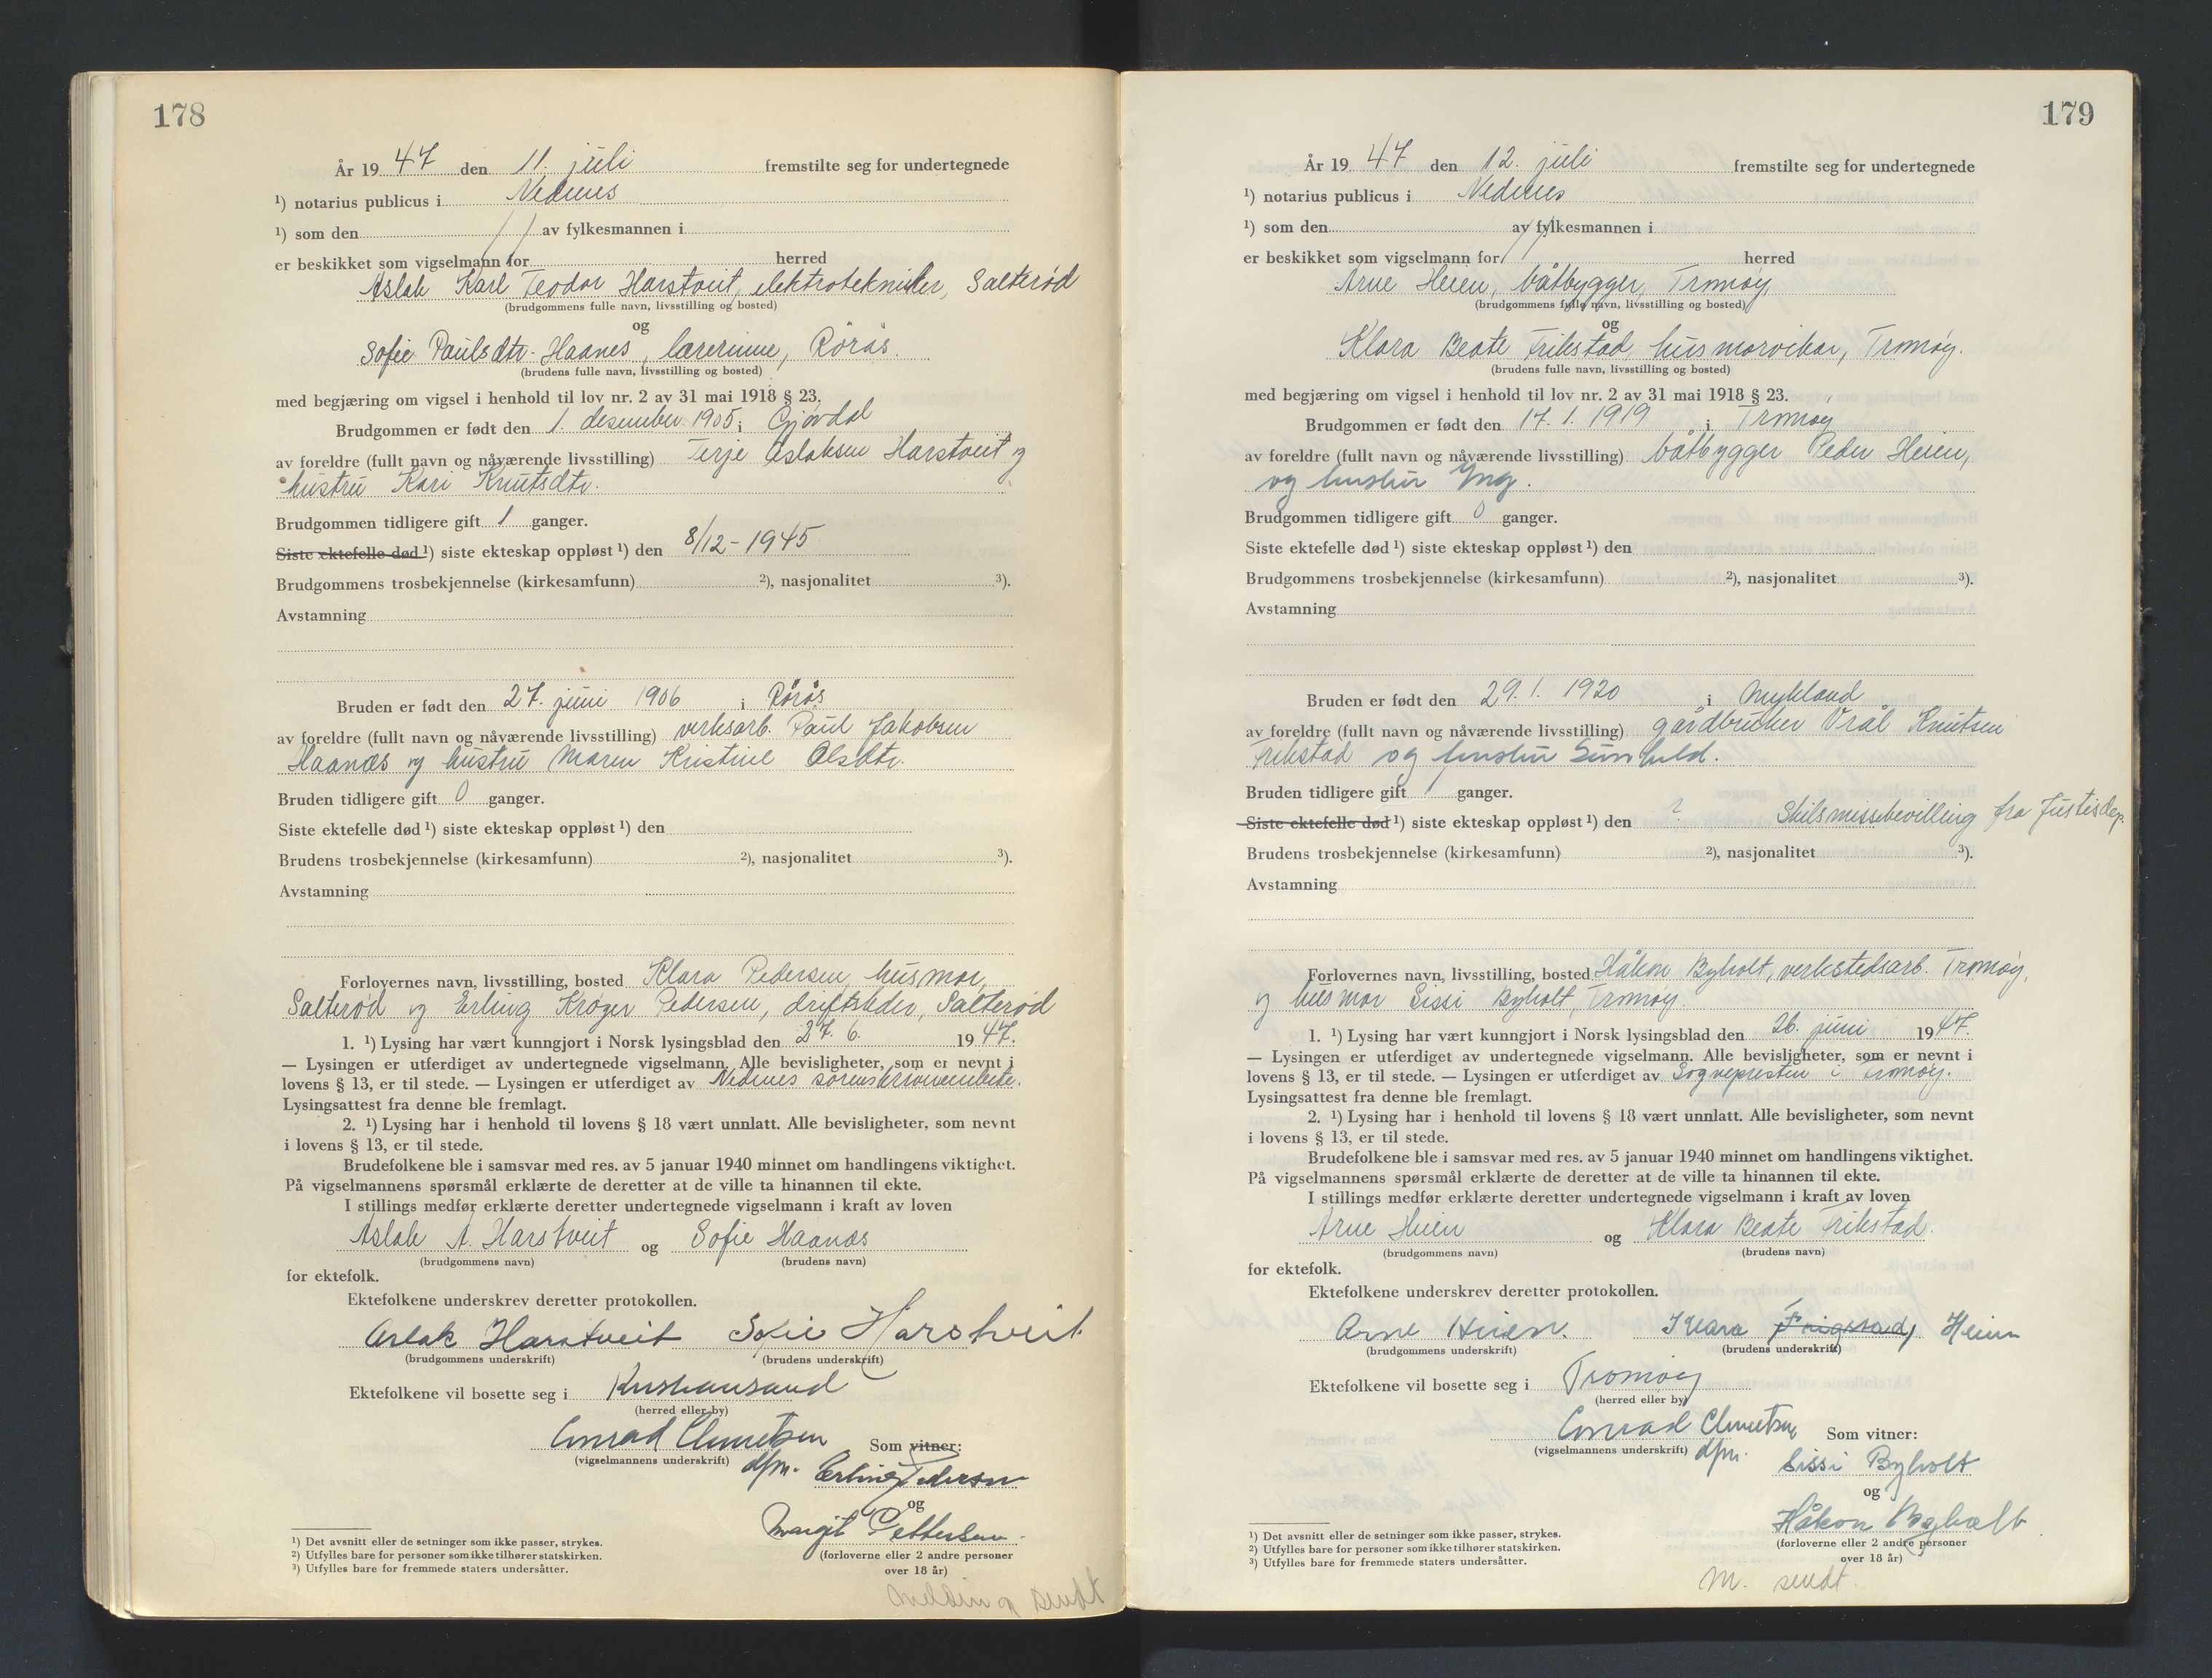 178
År 19 47 den 11. juli fremstilte seg for undertegnede
¹) notarius publicus i Nedenes
¹) som den av fylkesmannen i
er beskikket som vigselmann for herred
Aslak Karl Teodor Harstveit, elektrotekniker, Salterød
(brudgommens fulle navn, livsstilling og bosted)
og
Sofie Paulsdtr. Haanes, lærerinne, Rörås
(brudens fulle navn, livsstilling og bosted)
med begjæring om vigsel i henhold til lov nr. 2 av 31 mai 1918 § 23.
Brudgommen er født den 1. desember 1905 i Gjøvdal
av foreldre (fullt navn og nåværende livsstilling) Terje Aslaksen Harstveit og
hustru Kari Knutsdtr.
Brudgommen tidligere gift 1 ganger.
Siste ektefelle død ¹) siste ekteskap oppløst ¹) den 8/12 - 1945
Brudgommens trosbekjennelse (kirkesamfunn) ²), nasjonalitet ³).
Avstamning
Bruden er født den 27. juni 1906 i Rörås
av foreldre (fullt navn og nåværende livsstilling) verksarb. Paul Jakobsen
Haanæs og hustru Maren Kristine Olsdtr.
Bruden tidligere gift 0 ganger.
Siste ektefelle død ¹) siste ekteskap oppløst ¹) den
Brudens trosbekjennelse (kirkesamfunn) ²), nasjonalitet ³).
Avstamning
Forlovernes navn, livsstilling, bosted Klara Pedersen, husmor,
Salterød og Erling Krøger Pedersen, driftsleder, Salterød
1. ¹) Lysing har vært kunngjort i Norsk lysingsblad den 27. 6. 19 47.
— Lysingen er utferdiget av undertegnede vigselmann. Alle bevisligheter, som er nevnt i
lovens § 13, er til stede. — Lysingen er utferdiget av Nedenes sorenskriverembete.
Lysingsattest fra denne ble fremlagt.
2. ¹) Lysing har i henhold til lovens § 18 vært unnlatt. Alle bevisligheter, som nevnt
i lovens § 13, er til stede.
Brudefolkene ble i samsvar med res. av 5 januar 1940 minnet om handlingens viktighet.
På vigselmannens spørsmål erklærte de deretter at de ville ta hinannen til ekte.
I stillings medfør erklærte deretter undertegnede vigselmann i kraft av loven
Aslak A. Harstveit og Sofie Haanæs
(brudgommens navn) (brudens navn)
for ektefolk.
Ektefolkene underskrev deretter protokollen.
Aslak Harstveit Sofie Harstveit
(brudgommens underskrift) (brudens underskrift)
Ektefolkene vil bosette seg i Kristiansand
(herred eller by)
Conrad Clmetsen Som vitner:
(vigselmannens underskrift) dfm. Erling Pedersen
og
Margit Pettersen
¹) Det avsnitt eller de setninger som ikke passer, strykes.
²) Utfylles bare for personer som ikke tilhører statskirken. (forloverne eller 2 andre personer
³) Utfylles bare for fremmede staters undersåtter. over 18 år)
Melding sendt
179
År 19 47 den 12. juli fremstilte seg for undertegnede
¹) notarius publicus i Nedenes
¹) som den av fylkesmannen i
er beskikket som vigselmann for herred
Arne Heien, båtbygger, Tromøy
(brudgommens fulle navn, livsstilling og bosted)
og
Klara Beate Frikstad, husmorvikar, Tromøy.
(brudens fulle navn, livsstilling og bosted)
med begjæring om vigsel i henhold til lov nr. 2 av 31 mai 1918 § 23.
Brudgommen er født den 17. 1. 1919 i Tromøy
av foreldre (fullt navn og nåværende livsstilling) båtbygger Peder Heien,
og hustru Yng.
Brudgommen tidligere gift 0 ganger.
Siste ektefelle død ¹) siste ekteskap oppløst ¹) den
Brudgommens trosbekjennelse (kirkesamfunn) ²), nasjonalitet ³).
Avstamning
Bruden er født den 29. 1. 1920 i Mykland
av foreldre (fullt navn og nåværende livsstilling) gårdbruker Vrål Knutsen
Frikstad og hustru Gunhild.
Bruden tidligere gift 1 ganger.
Siste ektefelle død ¹) siste ekteskap oppløst ¹) den ? Skilsmissebevilling fra Justisdep.
Brudens trosbekjennelse (kirkesamfunn) ²), nasjonalitet ³).
Avstamning
Forlovernes navn, livsstilling, bosted Håkon Byholt, verkstedsarb. Tromøy,
og husmor Sissi Byholt, Tromøy.
1. ¹) Lysing har vært kunngjort i Norsk lysingsblad den 26. juni 19 47.
— Lysingen er utferdiget av undertegnede vigselmann. Alle bevisligheter, som er nevnt i
lovens § 13, er til stede. — Lysingen er utferdiget av Sognepresten i Tromøy.
Lysingsattest fra denne ble fremlagt.
2. ¹) Lysing har i henhold til lovens § 18 vært unnlatt. Alle bevisligheter, som nevnt
i lovens § 13, er til stede.
Brudefolkene ble i samsvar med res. av 5 januar 1940 minnet om handlingens viktighet.
På vigselmannens spørsmål erklærte de deretter at de ville ta hinannen til ekte.
I stillings medfør erklærte deretter undertegnede vigselmann i kraft av loven
Arne Heien og Klara Beate Frikstad.
(brudgommens navn) (brudens navn)
for ektefolk.
Ektefolkene underskrev deretter protokollen.
Arne Heien. Klara Frigstad, Heien
(brudgommens underskrift) (brudens underskrift)
Ektefolkene vil bosette seg i Tromøy
(herred eller by)
Conrad Clmetsen Som vitner:
(vigselmannens underskrift) dfm. Sissi Byholt
og
Håkon Byholt
¹) Det avsnitt eller de setninger som ikke passer, strykes.
²) Utfylles bare for personer som ikke tilhører statskirken. (forloverne eller 2 andre personer
³) Utfylles bare for fremmede staters undersåtter. over 18 år)
M. sendt.